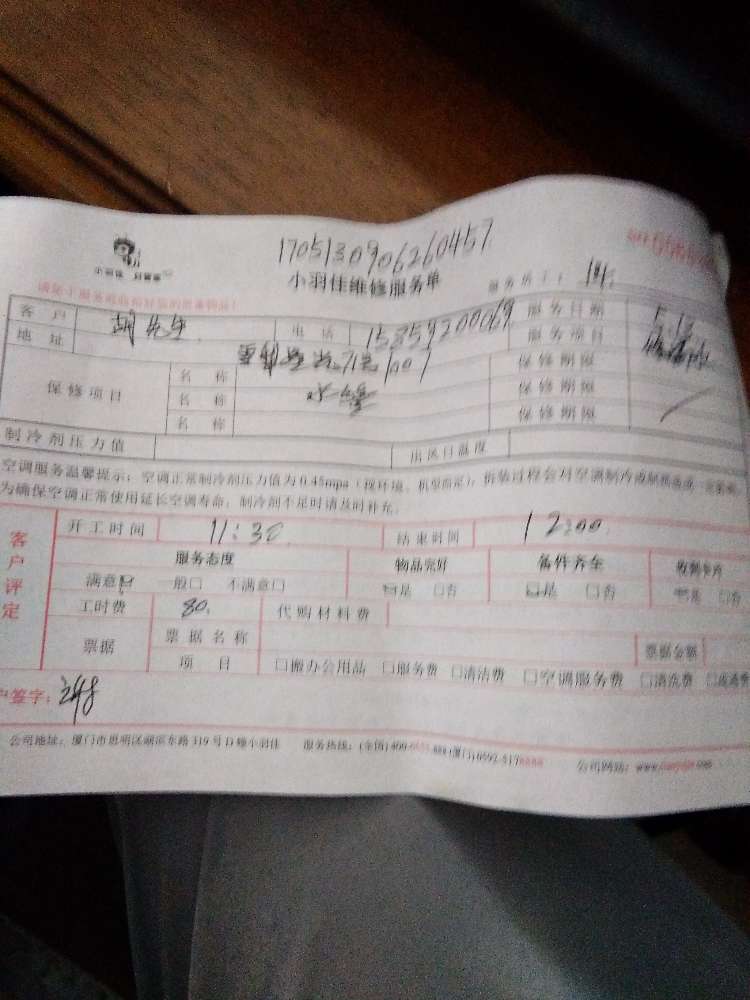 170513090626 0457
小羽佳维修服务单
服务员工:
请您于服务前收拾好您的贵重物品!
客户 胡先生 电话 15859200069 服务日期 5.13
地址 1001 服务项目
保修项目 名称 水管 保修期限
名称 保修期限
名称 保修期限
制冷剂压力值 出风口温度
空调服务温馨提示:空调正常制冷剂压力值为0.45mpa(视环境、机型而定),拆装过程会对空调制冷剂
为确保空调正常使用延长空调寿命,制冷剂不足时请及时补充。
客户评定
开工时间 11:30 结束时间 12:00
服务态度 物品完好 备件齐全
满意□ 一般□ 不满意□ □是 □否 □是 □否 是 □否
工时费 80. 代购材料费
票据 票据名称 票据金额
项目 □搬办公用品 □服务费 □清洁费 □空调服务费 □清洗费
户签字:
公司地址:厦门市思明区湖滨东路319号D幢小羽佳 服务热线:(全国)400- (厦门)0592-5178888 公司网站:www. .com